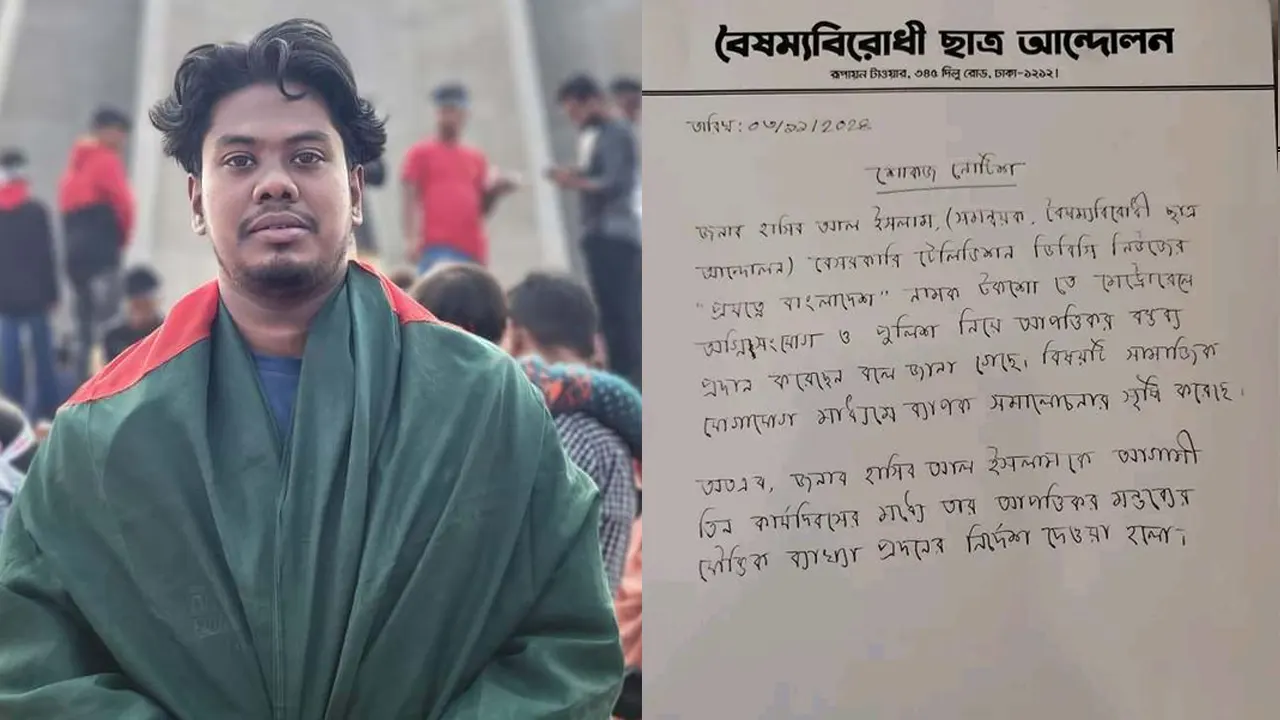 বৈষম্যবিরোধী ছাত্র আন্দোলন
রূপায়ন টাওয়ার, ৩৪৫ দিলু রোড, ঢাকা-১২১২।
তারিখ: ০৩/১১/2024
শোকজ নোটিশ
জনাব হাসিব আল ইসলাম, (সমন্বয়ক, বৈষম্যবিরোধী ছাত্র
আন্দোলন) বেসরকারি টেলিভিশন ডিবিসি নিউজের
"প্রযত্নে বাংলাদেশ" নামক টকশো তে মেট্রোরেলে
অগ্নিসংযোগ ও পুলিশ নিয়ে আপত্তিকর বক্তব্য
প্রদান করেছেন বলে জানা গেছে। বিষয়টি সামাজিক
যোগাযোগ মাধ্যমে ব্যাপক সমালোচনার সৃষ্টি করেছে।
অতএব, জনাব হাসিব আল ইসলাম কে আগামী
তিন কার্যদিবসের মধ্যে তার আপত্তিকর মন্তব্যের
যৌক্তিক ব্যাখ্যা প্রদানের নির্দেশ দেওয়া হলো;